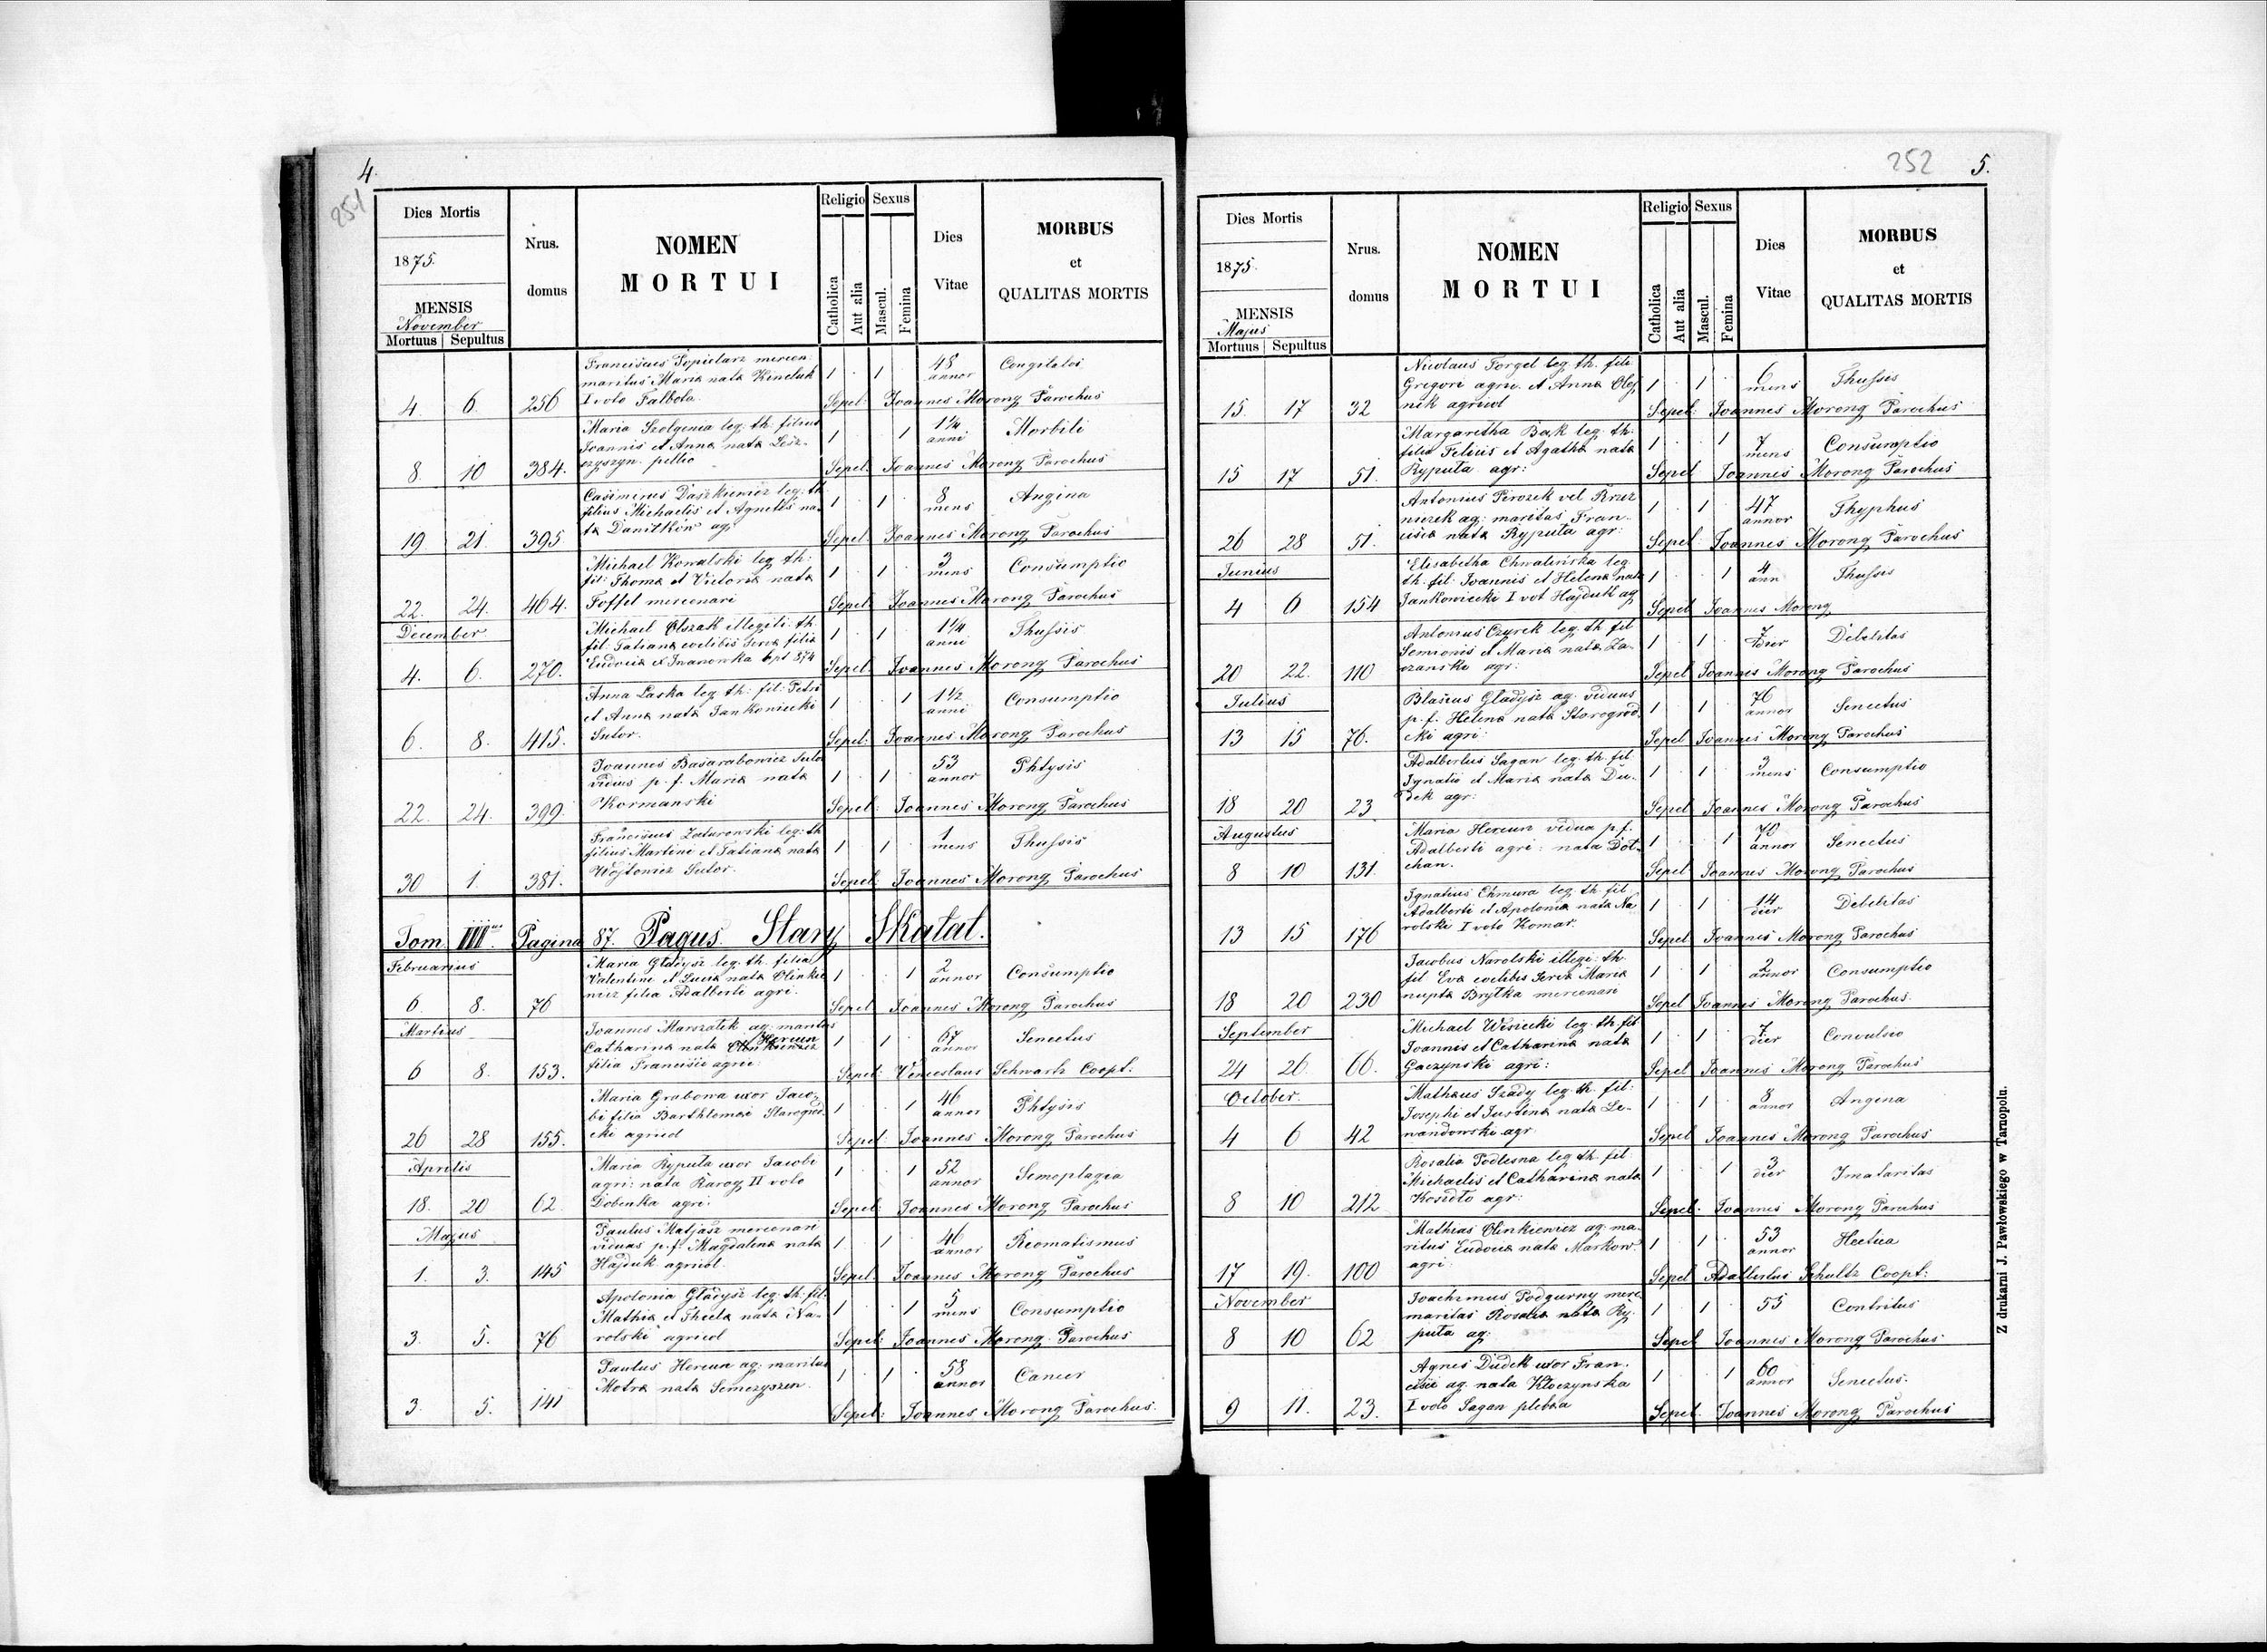 4.
251
Dies Mortis
1875.
MENSIS
November
Mortuus Sepultus
Nrus. domus
NOMEN
MORTUI
Religio
Catholica
Aut alia
Sexus
Mascul.
Femina
Dies
Vitae
MORBUS
et
QUALITAS MORTIS
4. 6. 256
Franciscus Popielarz mercen.
maritus Maria nata Kineluk
I voto Falbota.
1 1 48 annor
Sepel: Joannes Morong Parochus
8. 10 384.
Maria Szolgenia leg: th: filius
Joannis et Anna nata Lesz-
czyszyn. pellio
1 1 1¼ anni Morbili
Sepel: Joannes Morong Parochus
19. 21. 395.
Casimirus Daszkiewicz leg: th
filius Michaelis et Agnetis na-
ta Danitkiw ag.
1 1 8 mens Angina
Sepel: Joannes Morong Parochus
22. 24. 464.
Michael Kowalski leg: th:
fil: Thoma et Victoria nata
Foffel mercenari
1 1 3 mens Consumptio
Sepel: Joannes Morong Parochus
December
4. 6. 270.
Michael Olszak illegiti: th.
fil: Tatiana coelibis serva filia
Eudocia et Iwanowka 874
1 1 1¼ anni Thussis
Sepel: Joannes Morong Parochus
6. 8. 415.
Anna Laska leg: th: fil: Petri
et Anna nata Jankowiecki
Sutor.
1 1 1½ anni Consumptio
Sepel: Joannes Morong Parochus
22. 24. 399.
Joannes Basarabowicz Sutor
viduus p. f. Maria nata
Kormanski
1 1 53 annor Phtysis
Sepel: Joannes Morong Parochus
30 1. 381.
Franciscus Zaturowski leg: th
filius Martini et Tatiana nata
Wojtowicz Sutor.
1 1 1 mens Thussis
Sepel: Joannes Morong Parochus
Tom IIII Pagina 87. Pagus Stary Skatat.
Februarius
6 8. 76
Maria Gładysz leg: th. filia
Valentini et Lucia nata Olinkie
wicz filia Adalberti agri.
1 1 2 annor Consumptio
Sepel: Joannes Morong Parochus
Martius
6 8. 153.
Joannes Marszałek ag: maritus
Hercun
Catharina nata Olinkiewicz
filia Francisci agri:
1 1 67 annor Senectus
Sepel: Venceslaus Schwartz Coopt.
26 28 155.
Maria Grabowa uxor Jaco-
bi filia Barthlomei Starogrod
cki agricol
1 1 46 annor Phtysis
Sepel: Joannes Morong Parochus
Aprilis
18. 20 62.
Maria Ryputa uxor Jacobi
agri: nata Rarog II voto
Dobenka agri:
1 1 52 annor Semoplagia
Sepel: Joannes Morong Parochus
Majus
1. 3. 145
Paulus Matjasz mercenari
viduus p. f. Magdalena nata
Hajduk agricol.
1 1 46 annor Reomatismus
Sepel: Joannes Morong Parochus
3. 5. 76
Apolonia Gładysz leg: th: fil:
Mathia et Thecla nata Na-
rolski agricol
1 1 5 mens Consumptio
Sepel: Joannes Morong Parochus
3. 5. 141
Paulus Hercun ag: maritus
Motra nata Semczyszen.
1 1 58 annor Cancer
Sepel: Joannes Morong Parochus.
252
5.
Dies Mortis
1875.
MENSIS
Majus
Mortuus Sepultus
Nrus. domus
NOMEN
MORTUI
Religio
Catholica
Aut alia
Sexus
Mascul.
Femina
Dies
Vitae
MORBUS
et
QUALITAS MORTIS
15. 17 32
Nicolaus Forgel leg. th. fili
Gregori agric. et Anna Olej
nik agricol
1 1 6 mens Thussis
Sepel: Joannes Morong Parochus
15 17 51.
Margaretha Bak leg: th.
filia Felicis et Agatha nata
Ryputa agr:
1 1 7 mens Consumptio
Sepel Joannes Morong Parochus
26 28 51.
Antonius Perozek vel Brzez
niczek ag: maritus Fran-
cisca nata Ryputa agr:
1 1 47 annor Thyphus
Sepel Joannes Morong Parochus
Junius
4 6 154
Elisabetha Chwalinska leg
th. fil: Joannis et Helena nata
Jankowiecki I vot Hajduk ag
1 1 4 ann Thussis
Sepel Joannes Morong
20 22. 110
Antonius Czyrek leg. th fil
Semionis et Maria nata Za-
czanski agr:
1 1 7 dier Debilitas
Sepel Joannes Morong Parochus
Julius
13 15 76.
Blasius Gladysz ag. viduus
p. f. Helena nata Starogrod
cki agri:
1 1 76 annor Senectus
Sepel Joannes Morong Parochus
18 20 23
Adalbertus Sagan leg. th. fil
Ignatio et Maria nata Du-
dek agr:
1 1 3 mens Consumptio
Sepel Joannes Morong Parochus
Augustus
8 10 131.
Maria Hercun vidua p. f.
Adalberti agri: nata Dot-
chan.
1 1 70 annor Senectus
Sepel Joannes Morong Parochus
13 15 176
Ignatius Chmura leg th. fil.
Adalberti et Apolonia nata Na
rolski I voto Komar.
1 1 14 dier Debilitas
Sepel Joannes Morong Parochus
18 20 230
Jacobus Narolski illegi: th.
fil Eva coelibis serva Maria
nupta Brytka mercenari
1 1 2 annor Consumptio
Sepel Joannes Morong Parochus.
September
24 26 66.
Michael Wesiecki leg. th. fil
Joannis et Catharina nata
Gaczynski agri:
1 1 7 dier Convulsio
Sepel Joannes Morong Parochus
October
4 6 42
Mathaus Szady leg th. fil:
Josephi et Justina nata Le-
wandowski agr.
1 1 8 annor Angina
Sepel Joannes Morong Parochus
8 10 212
Rosalia Podlesna leg th. fil
Michaelis et Catharina nata
Koszoło agr:
1 1 3 dier Imataritas
Sepel. Joannes Morong Parochus
17 19. 100
Mathias Olinkiewicz ag: ma-
ritus Eudocia nata Markow.
agri:
1 1 53 annor Hectica
Sepel Adalbertus Schultz Coopt:
November
8 10 62
Joachimus Podgurny merc.
maritus Rosalia nata Ry-
puta ag:
1 1 55 Contritus
Sepel Joannes Morong Parochus
9 11. 23.
Agnes Dudek uxor Fran-
cisci ag. nata Kłoczynska
I voto Sagan plebea
1 1 60 annor Senectus.
Sepel. Joannes Morong Parochus
Z drukarni J. Pawłowskiego w Tarnopolu.